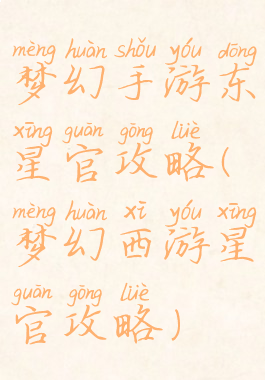 mèng huàn shǒu yóu dōng
梦幻手游东
xīng guān gōng lüè
星官攻略(
mèng huàn xī yóu xīng
梦幻西游星
guān gōng lüè
官攻略)